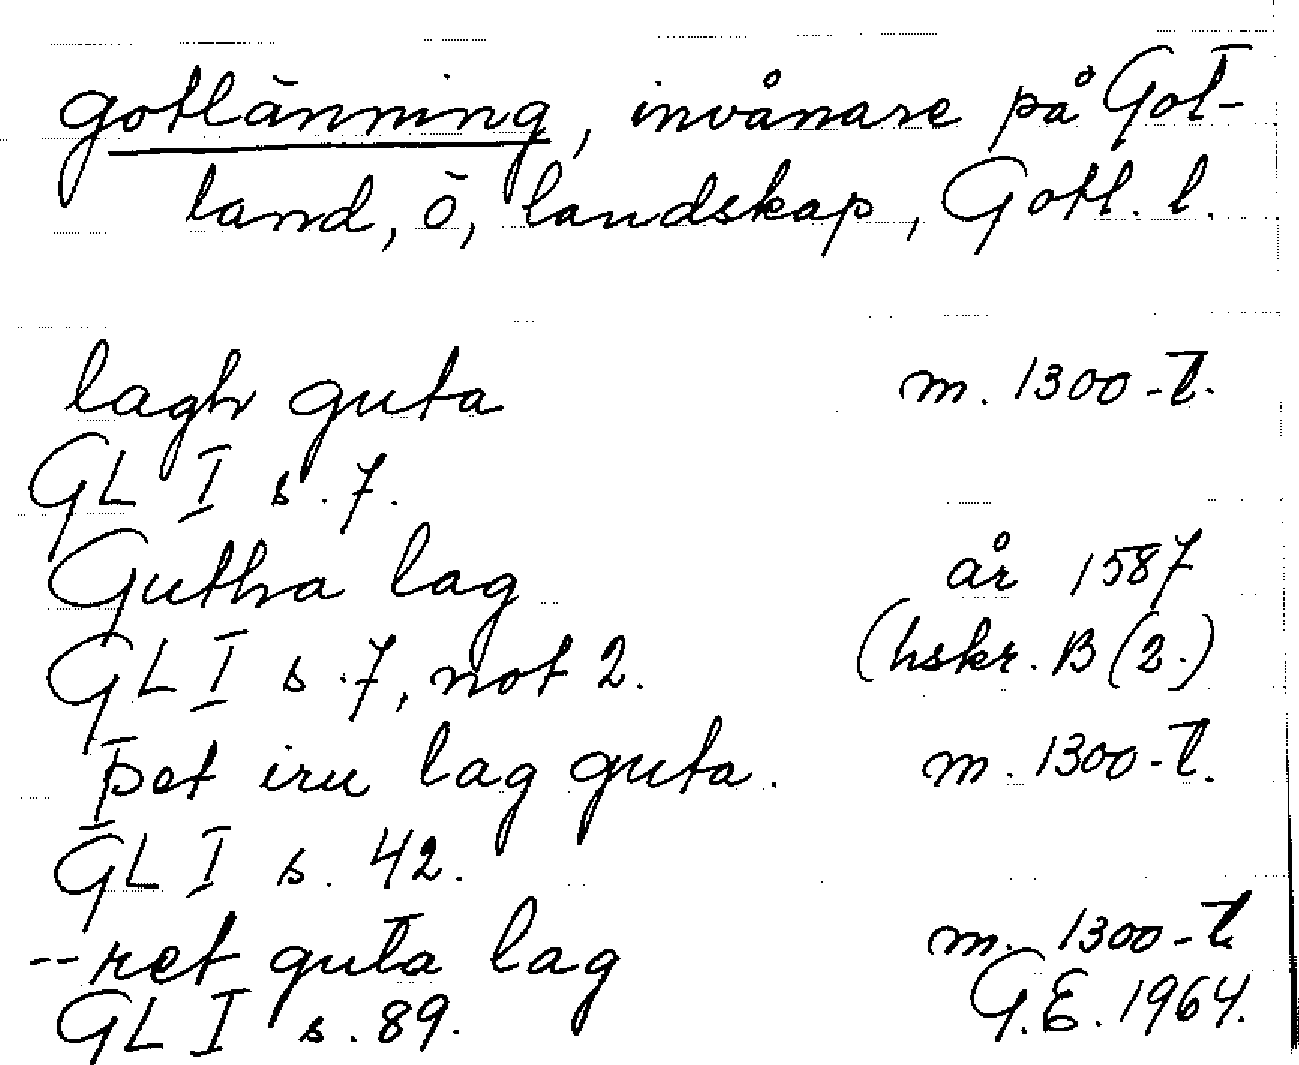 gotlänning, invånare på Got-
land, ö, landskap, Gotl. l.
lagh guta m. 1300-t.
GL I s. 7.
Gutha lag år 1587
GL I s. 7, not 2. (hskr. B (2.)
þet iru lag guta. m. 1300-t.
GL I s. 42.
-- ret guta lag m. 1300-t.
GL I s. 89. G.E. 1964.